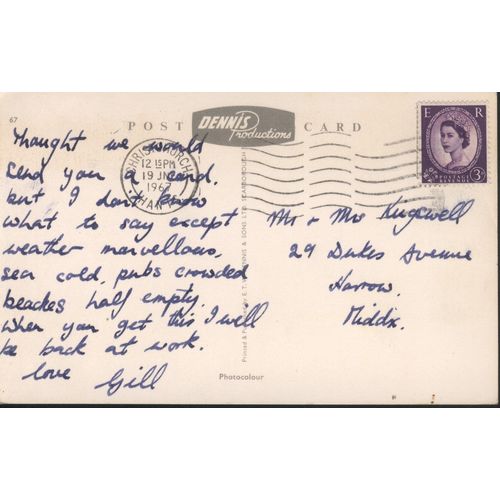 67
POST CARD
DENNIS
Productions
E R
3D
POSTAGE REVENUE
CHRISTCHURCH
12 15PM
19 JNE
1967
HANTS
Thought we would
send you a card.
but I don't know
what to say except
weather marvellous,
sea cold, pubs crowded
beaches half empty.
When you get this I well
be back at work.
love Gill
Mr + Mrs Kingwell
29 Dukes Avenue
Harrow.
Middx.
Photocolour